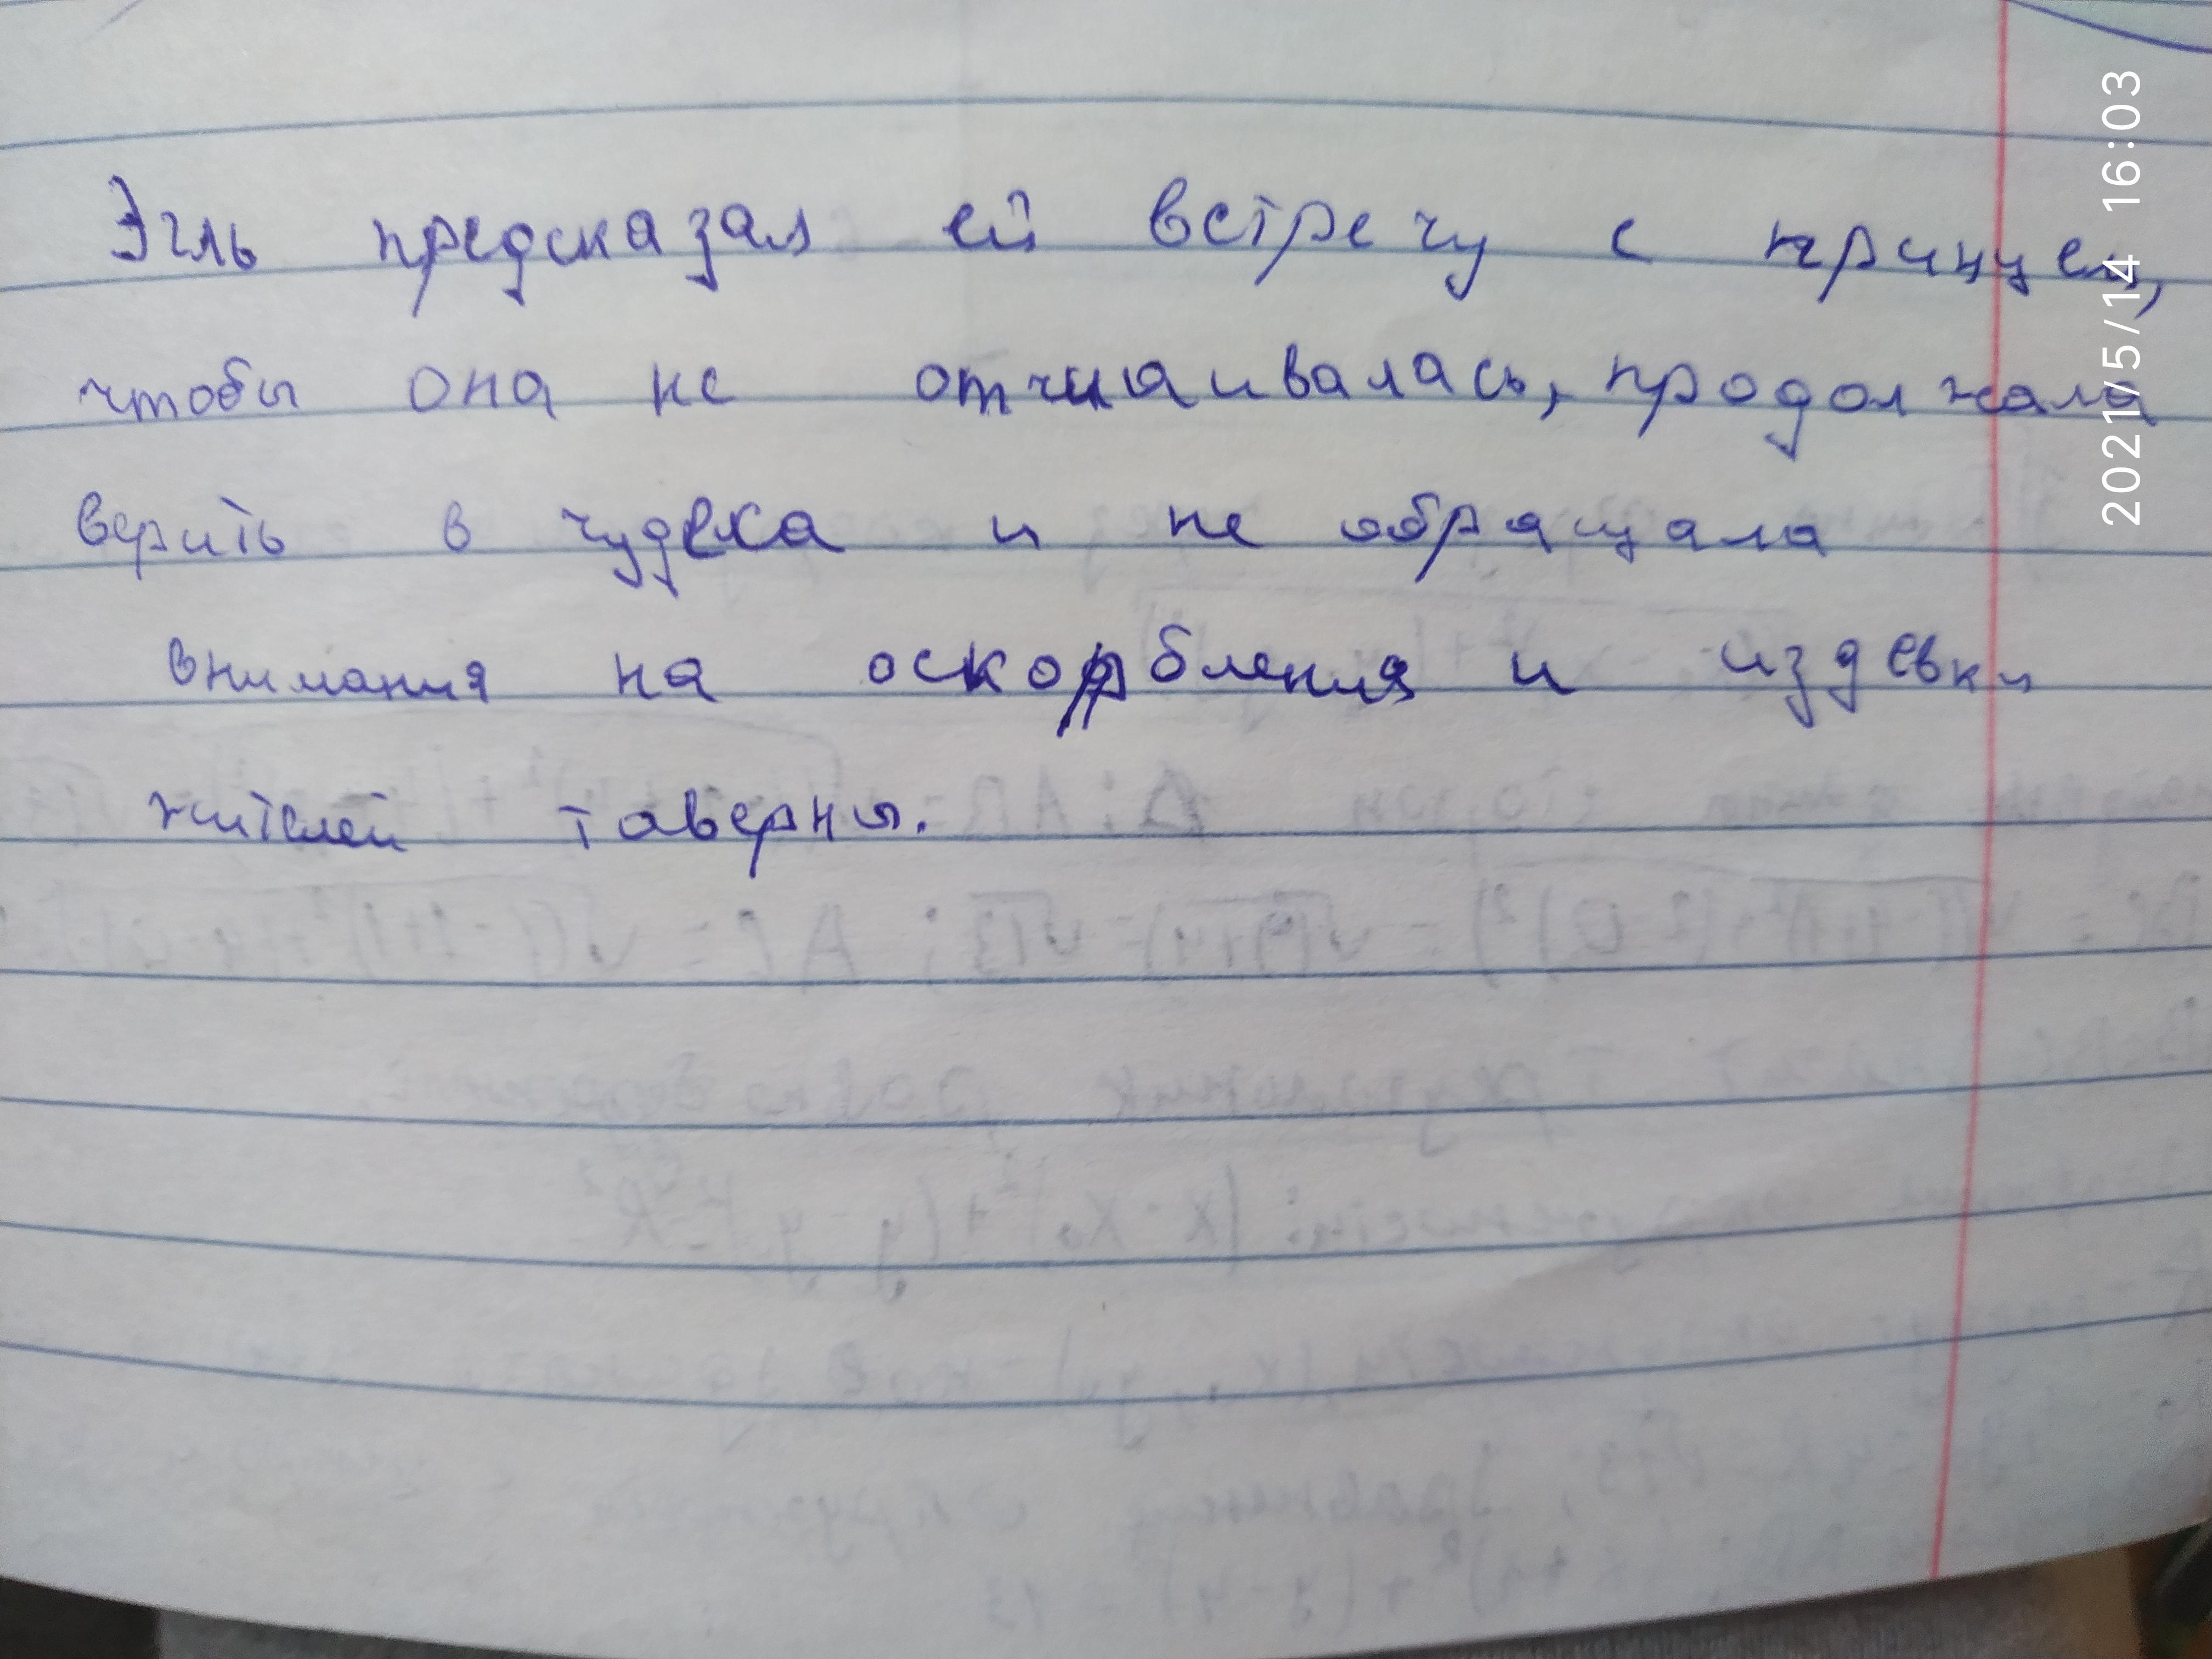 Эгль предсказал ей встречу с принцем,
чтобы она не отчаивалась, продолжала
верить в чудеса и не обращала
внимания на оскорбления и издевки
жителей таверны.
2021/5/14 16:03